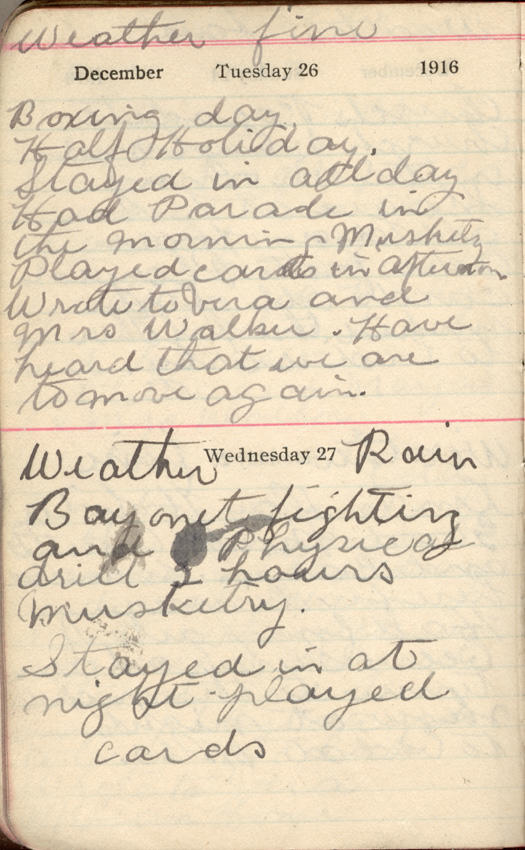 Weather fine
December Tuesday 26 1916
Boxing day.
Half Holiday.
Stayed in all day
Had Parade in
the morning Musketry
Played cards in afternoon
Wrote to Vera and
Mrs Walker. Have
heard that we are
to move again.
Weather Wednesday 27 Rain
Bayonet fighting
and Physical
drill 2 hours
Musketry.
Stayed in at
night played
cards